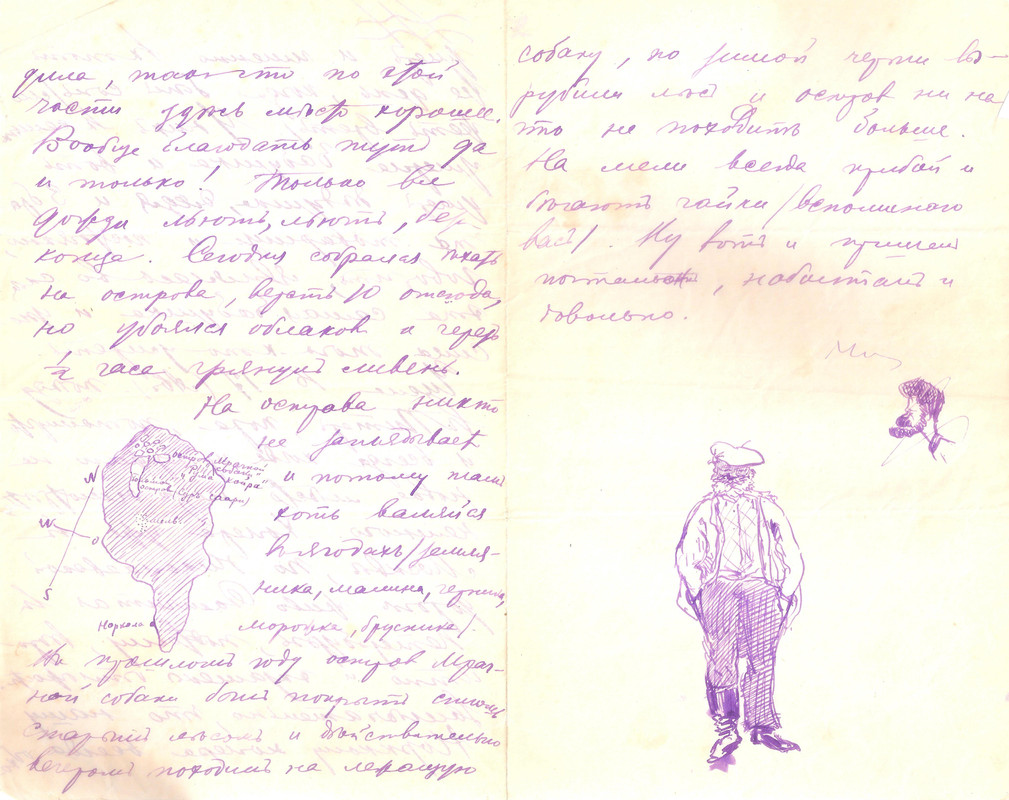 дила, такъ что по этой
части здѣсь мѣсто хорошее.
Вообще благодать тутъ да
и только! Только все
дожди льютъ, льютъ, безъ
конца. Сегодня собрался ѣхать
на острова, верстъ 10 отсюда,
но убоялся облаковъ а черезъ
½ часа грянулъ ливень.
На острова никто
не заглядываетъ
и потому тамъ
хоть валяйся
въ ягодахъ /земля-
ника, малина, черника,
морошка, брусника/.
N
W
O
S
островъ Мрачной
собаки
островъ
мель
Въ прошломъ году островъ Мрач-
ной собаки былъ покрытъ сплошь
старымъ лѣсомъ и дѣйствительно
вечеромъ походилъ на лежащую
собаку, но зимой черти вы-
рубили лѣсъ и островъ ни на
что не походитъ больше.
На мели всегда прибой и
бѣгаютъ чайки /вспоминаю
васъ/. Ну вотъ и пришелъ
почтальонъ, наболталъ и
довольно.